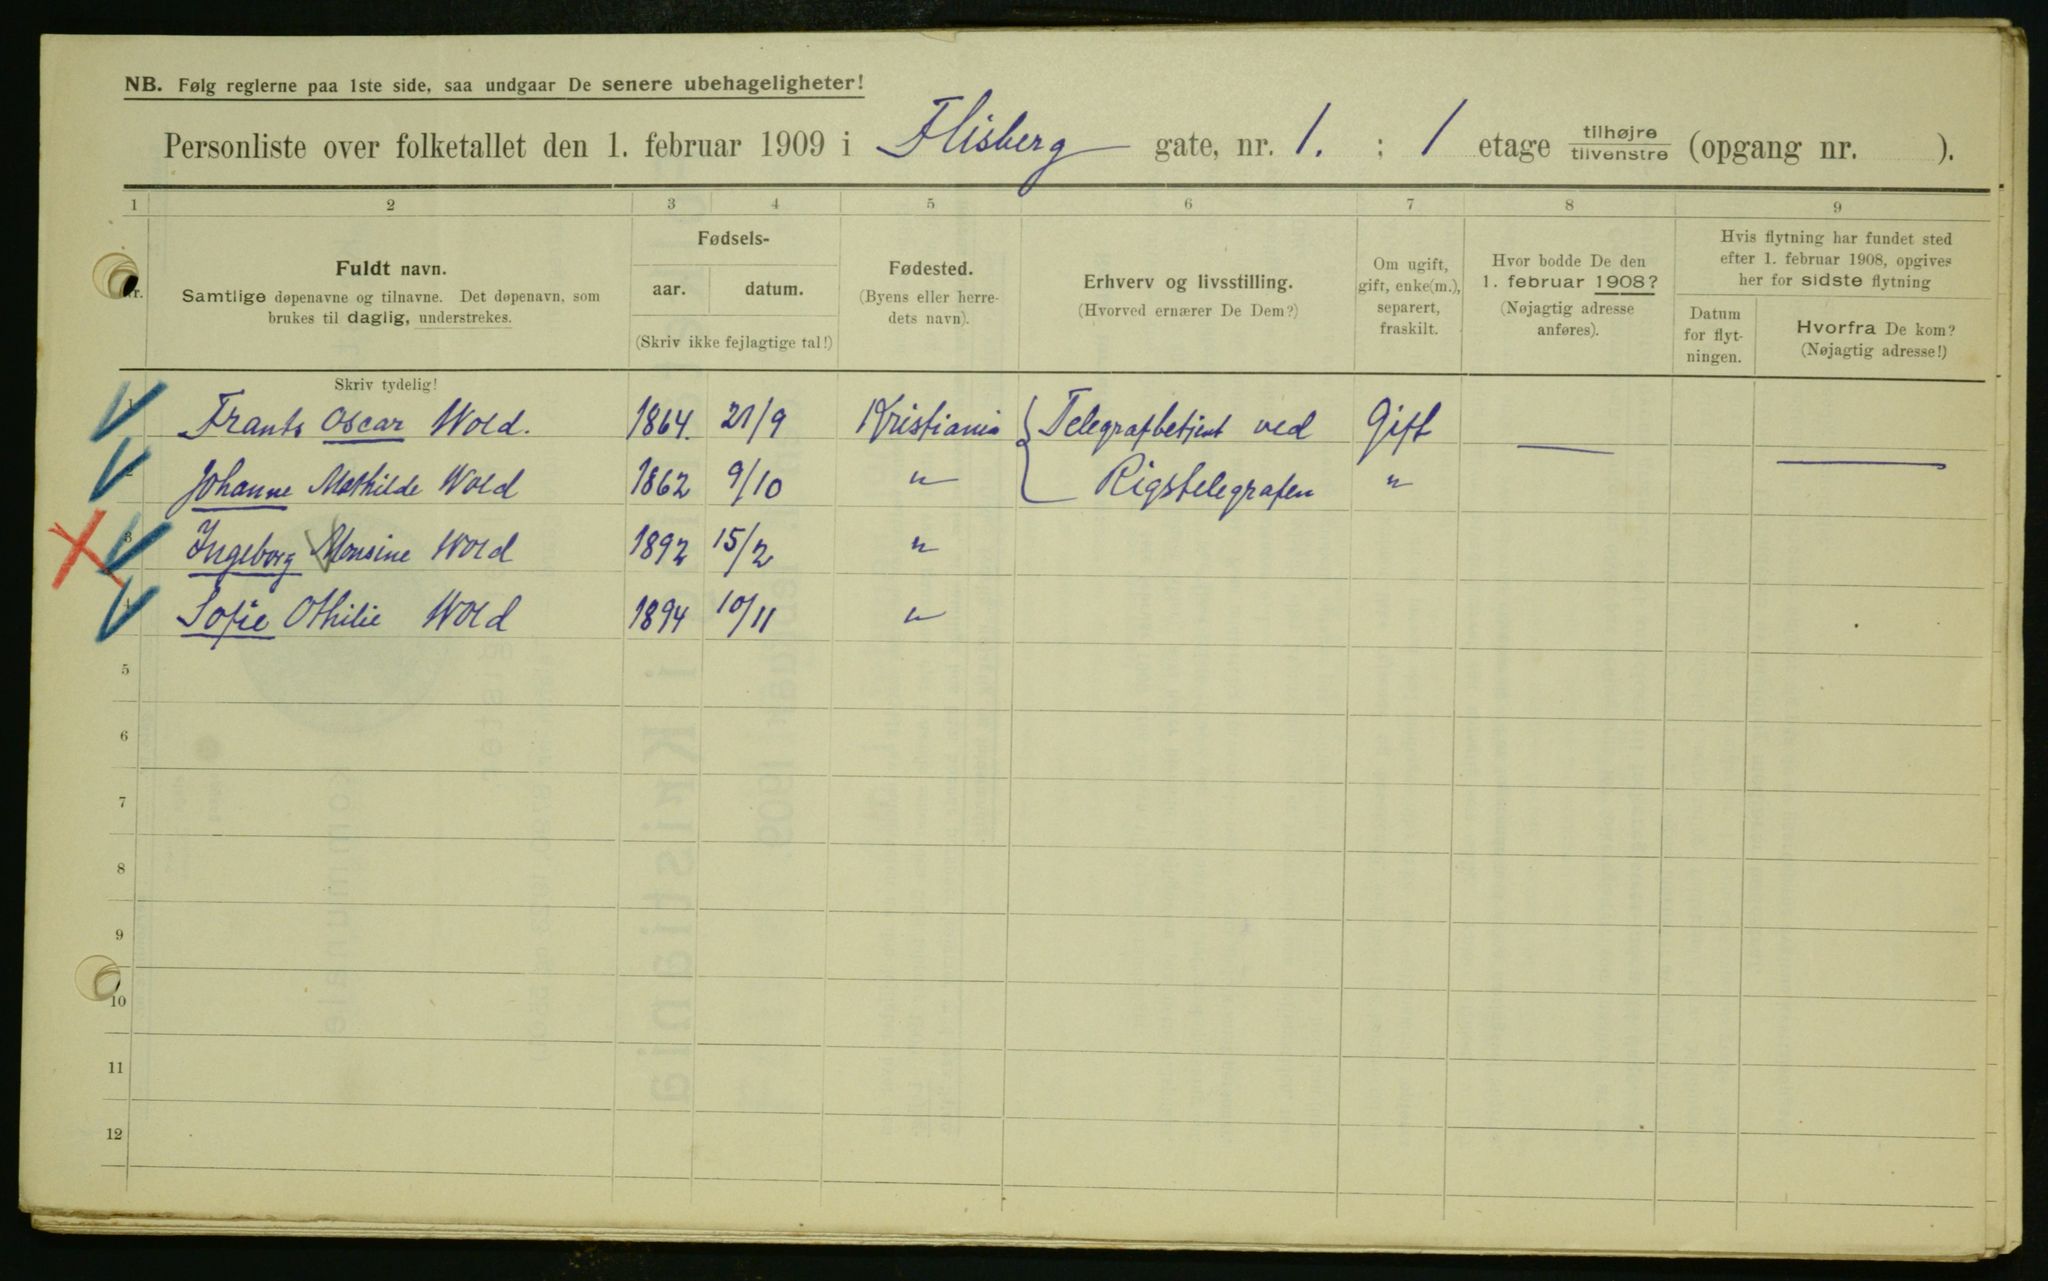 NB. Følg reglerne paa 1ste side, saa undgaar De senere ubehageligheter!
Personliste over folketallet den 1. februar 1909 i Flisberg gate, nr. 1. ; 1 etage tilhøjre/tilvenstre (opgang nr. ).
1 2 3 4 5 6 7 8 9
Nr.
Fuldt navn.
Samtlige døpenavne og tilnavne. Det døpenavn, som
brukes til daglig, understrekes.
Skriv tydelig!
Fødsels-
aar. datum.
(Skriv ikke fejlagtige tal!)
Fødested.
(Byens eller herre-
dets navn).
Erhverv og livsstilling.
(Hvorved ernærer De Dem?)
Om ugift,
gift, enke(m.),
separert,
fraskilt.
Hvor bodde De den
1. februar 1908?
(Nøjagtig adresse
anføres).
Hvis flytning har fundet sted
efter 1. februar 1908, opgives
her for sidste flytning
Datum
for flyt-
ningen.
Hvorfra De kom?
(Nøjagtig adresse!)
1 Frants Oscar Wold. 1864. 21/9 Kristiania Telegrafbetjent ved Gift
2 Johanne Mathilde Wold 1862 9/10 " Rigstelegrafen "
3 Ingeborg Monsine Wold 1892 15/2 "
4 Sofie Othilie Wold 1894 10/11 "
5
6
7
8
9
10
11
12